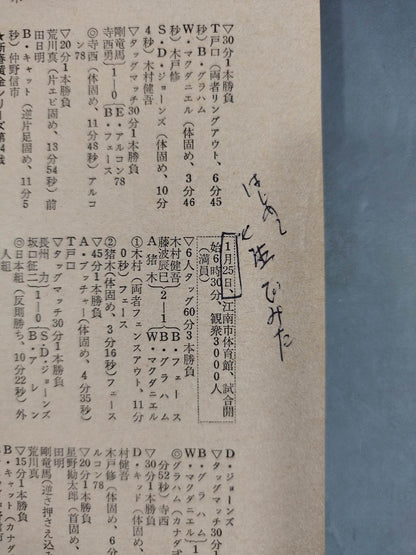 ▽30分1本勝負
T戸口(両者リングアウト、6分45
秒)B・グラハム
W・マクダニエル(体固め、3分46
秒)木戸修
S・D・ジョーンズ(体固め、10分
4秒)木村健吾
▽タッグマッチ30分1本勝負
剛竜馬
寺西勇
1―0
E・アルコン78
B・フェース
◎寺西(体固め、11分48秒)アルコ
ン78
▽20分1本勝負
荒川真(片エビ固め、13分54秒)前
田日明
B・キャット(逆片足固め、11分5
秒)仲野信市
★新春黄金シリーズ第24戦
はじめて
生でみた
1月25日、江南市体育館、試合開
始6時30分、観衆3000人
(満員)
▽6人タッグ60分3本勝負
木村健吾
藤波辰巳
A猪木
2―1
B・フェース
B・グラハム
W・マクダニエル
①木村(両者フェンスアウト、11分
0秒)フェース
②猪木(体固め、3分16秒)フェース
▽45分1本勝負
A・ブッチャー(体固め、4分35秒)
T戸口
▽タッグマッチ30分1本勝負
長州力
坂口征二
1―0
S・D・ジョーンズ
B・アレン
◎日本組(反則勝ち、10分22秒)外
人組
D・ジョーンズ
▽タッグマッチ30分1
B・グラハム
W・マクダニエル
1
◎グラハム(カナダ
分52秒)寺西
▽30分1本勝負
D・キッド(体固め、
村健吾
木戸修(体固め、
ルコン78
▽20分1本勝負
星野勘太郎(首固め、
田明
剛竜馬(逆さ押さえ込
荒川真
▽15分1本勝負
B・キャット(カナダ